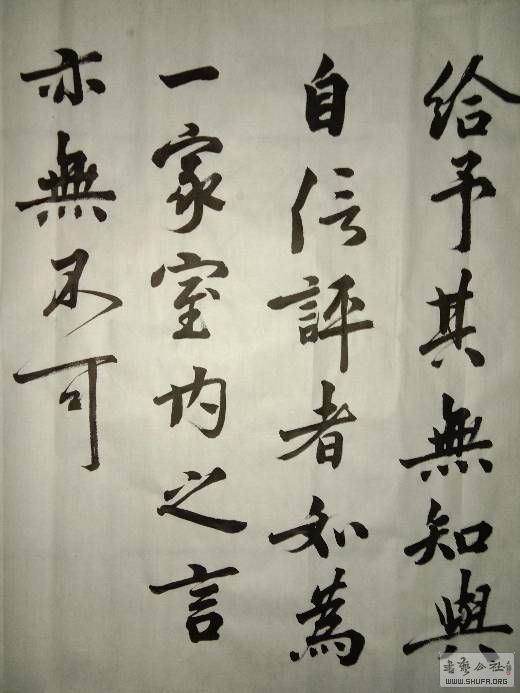 给予其無知與
自信評者如為
一家室内之言
亦無不可
書藝公社
WWW.SHUFA.ORG